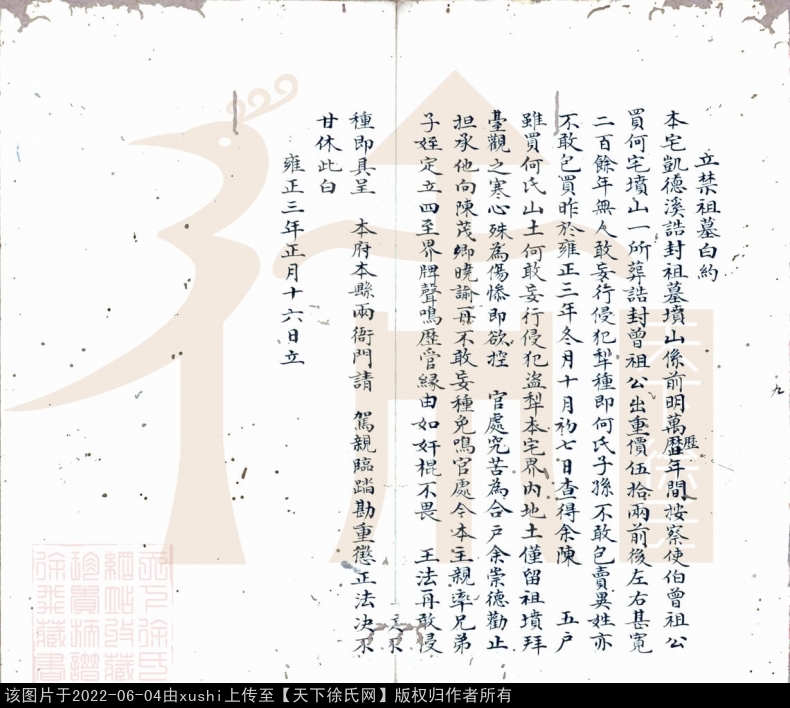 立禁祖墓白約
本宅凱德溪誥封祖墓墳山係前明萬歷年間按察使伯曾祖公
歷
買何宅墳山一所葬誥封曾祖公出重價伍拾兩前後左右甚寬
二百餘年無人敢妄行侵犯犁種即何氏子孫不敢包賣異姓亦
不敢包買昨於雍正三年冬月十月初七日查得余陳 五戶
雖買何氏山土何敢妄行侵犯盜犁本宅界內地土僅留祖墳拜
臺觀之寒心殊為傷慘即欲控 官處究苦為合戶余崇德勸止
担承他向陳茂卿曉諭再不敢妄種免鳴官處今本主親率兄弟
子姪定立四至界牌聲鳴歷管緣由如奸棍不畏 王法再敢侵
種即具呈 本府本縣兩衙門請 駕親臨踏勘重懲正法決不
甘休此白
雍正三年正月十六日立
九
天下徐氏
網帖收藏
珍貴拓譜
徐氏藏書
该图片于2022-06-04由xushi上传至【天下徐氏网】版权归作者所有